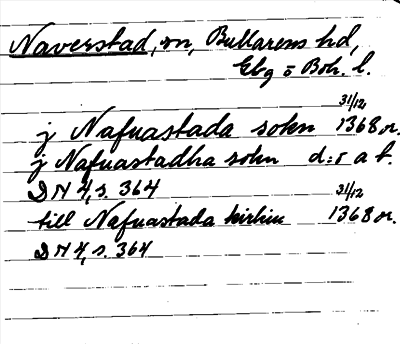 Naverstad, sn, Bullarens hd,
Gbg o Boh. l.
31/12
j Nafuastada sokn 1368 or.
j Nafuastadha sokn d:o a t.
DN 4, s. 364
31/12
till Nafuastada kirkiu 1368 or.
DN 4, s. 364